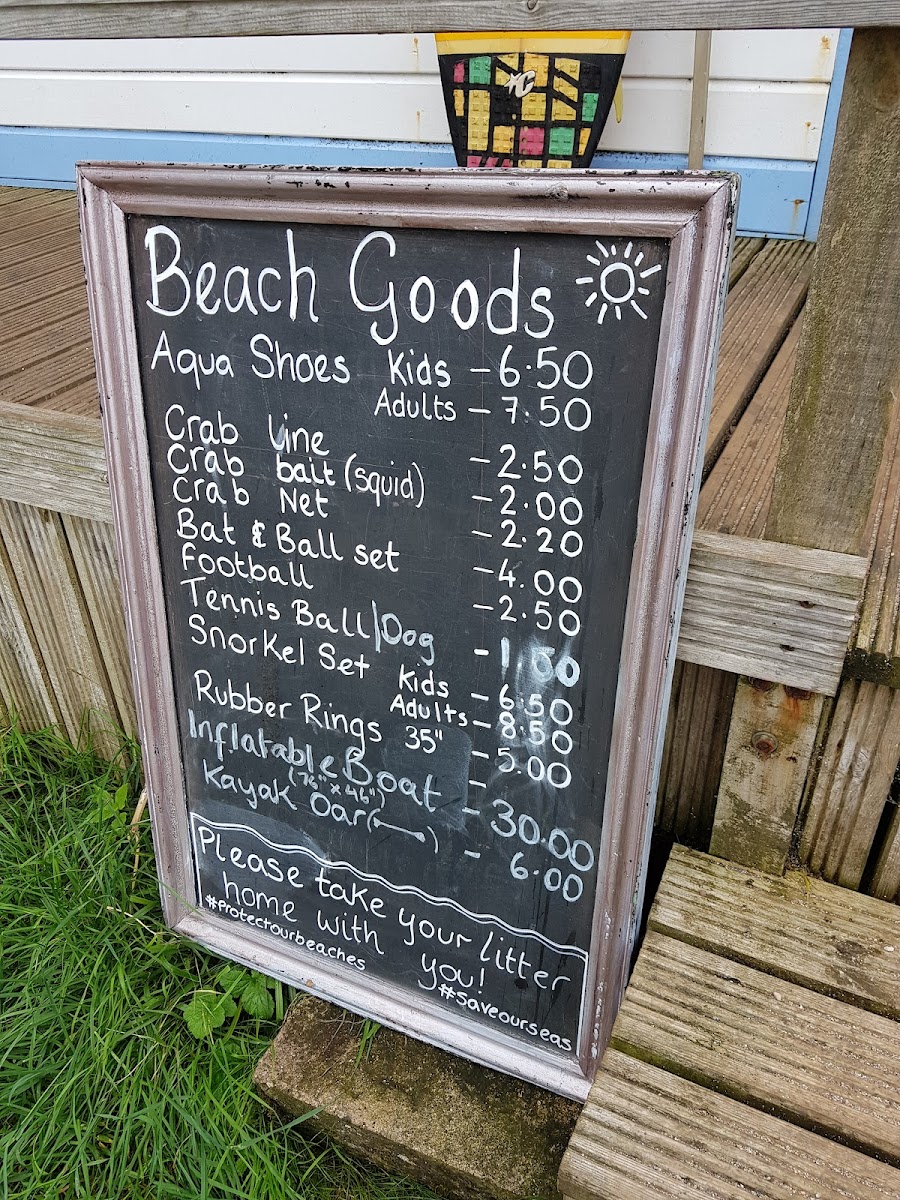 Beach Goods
Aqua Shoes Kids - 6.50
Adults - 7.50
Crab Line - 2.50
Crab bait (squid) - 2.00
Crab Net - 2.20
Bat & Ball set - 4.00
Football - 2.50
Tennis Ball/Dog - 1.50
Snorkel Set Kids - 6.50
Adults - 8.50
Rubber Rings 35" - 5.00
Inflatable Boat - 30.00
(76" x 46")
Kayak Oar - 6.00
Please take your litter
home with you!
#Protectourbeaches
#saveourseas